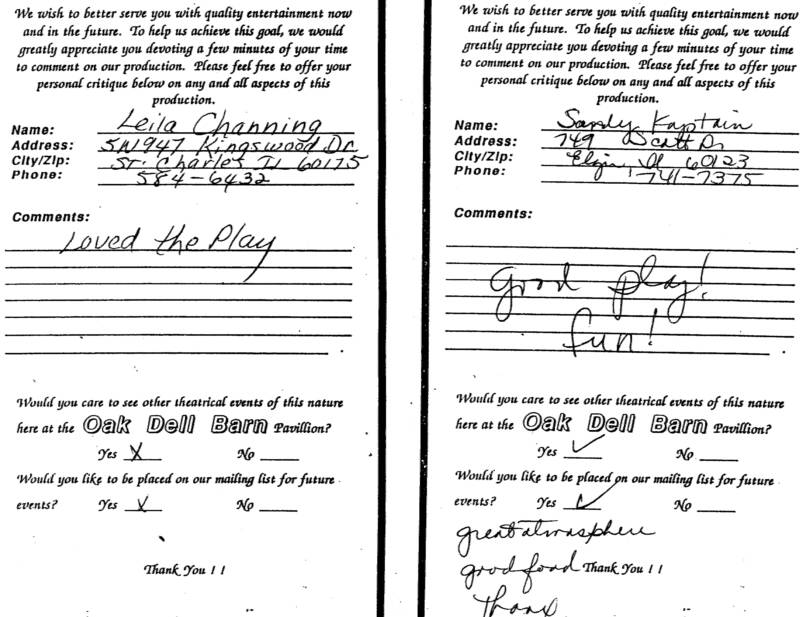 We wish to better serve you with quality entertainment now
and in the future. To help us achieve this goal, we would
greatly appreciate you devoting a few minutes of your time
to comment on our production. Please feel free to offer your
personal critique below on any and all aspects of this
production.
Name: Leila Channing
Address: 5N947 Kingswood Dr
City/Zip: St. Charles Il 60175
Phone: 584-6432
Comments:
Loved the Play
Would you care to see other theatrical events of this nature
here at the Oak Dell Barn Pavillion?
Yes X No
Would you like to be placed on our mailing list for future
events? Yes X No
Thank You ! !
We wish to better serve you with quality entertainment now
and in the future. To help us achieve this goal, we would
greatly appreciate you devoting a few minutes of your time
to comment on our production. Please feel free to offer your
personal critique below on any and all aspects of this
production.
Name: Sandy Kaptain
Address: 749 Scott Dr
City/Zip: Elgin, Il 60123
Phone: 741-7375
Comments:
Good play!
fun!
Would you care to see other theatrical events of this nature
here at the Oak Dell Barn Pavillion?
Yes ✓ No
Would you like to be placed on our mailing list for future
events? Yes ✓ No
great atmosphere
good food Thank You ! !